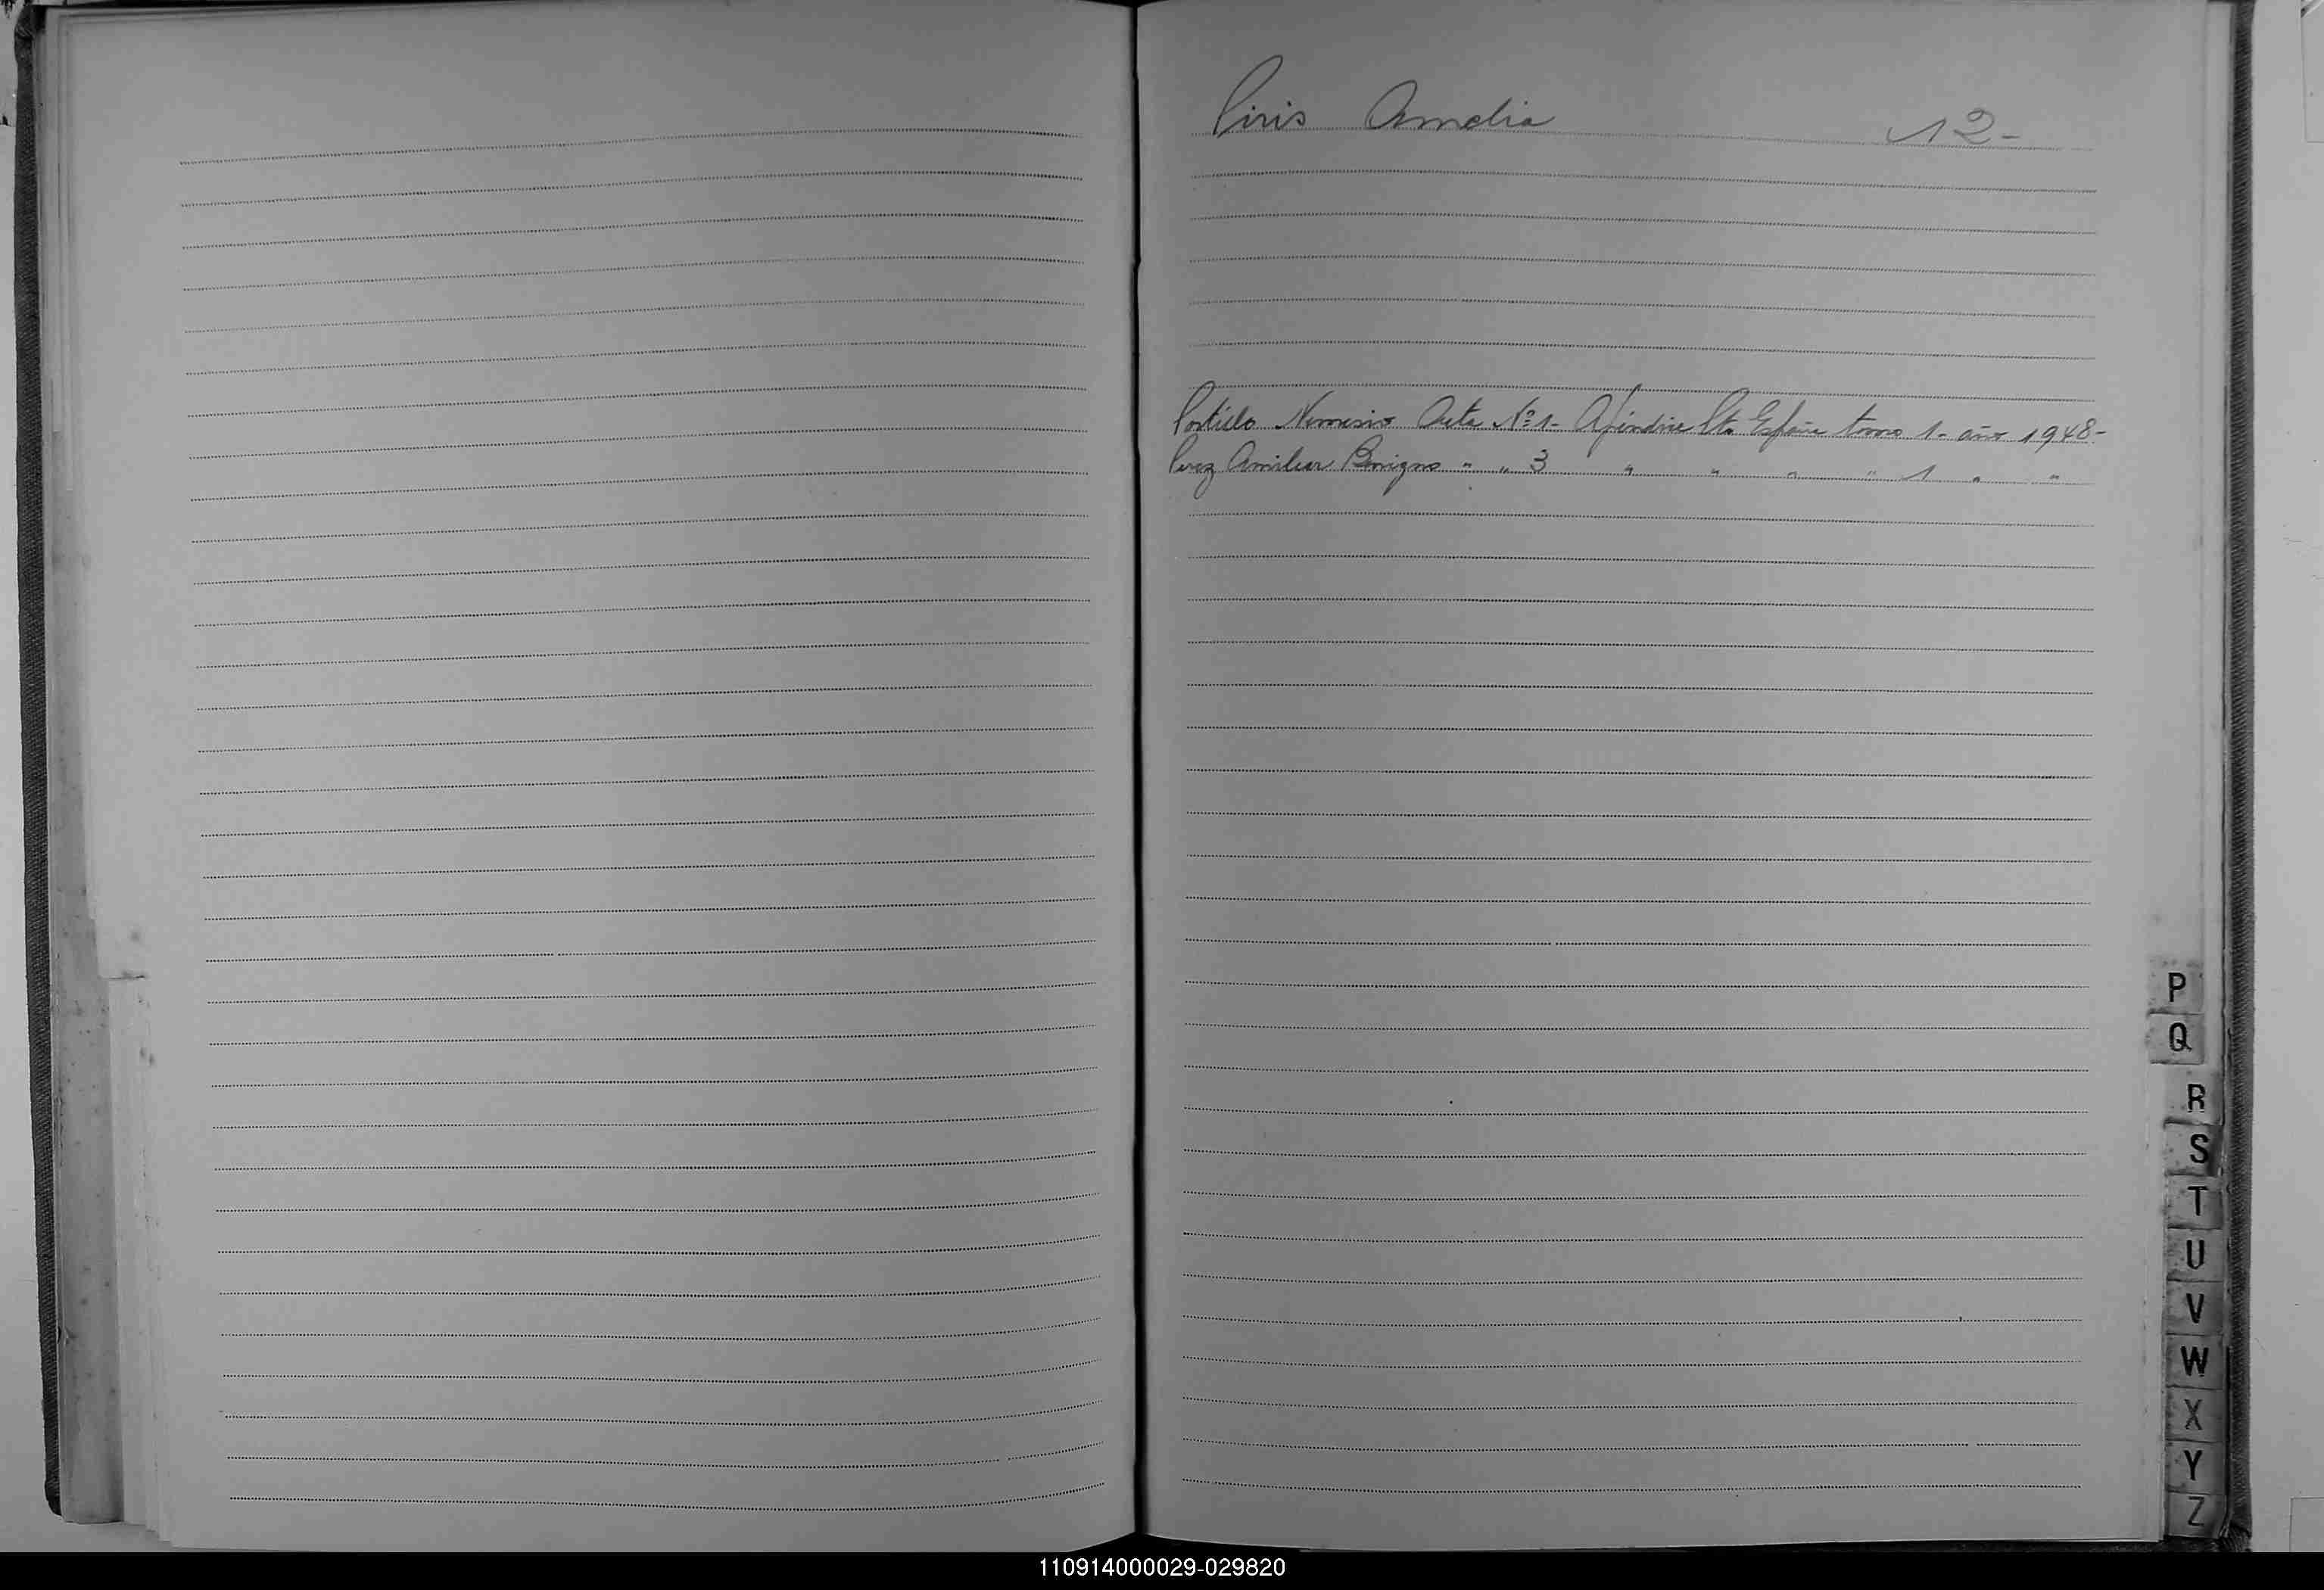 Piris Amelia 12-
Portillo Nemesio Acta Nº 1- Apéndice Pto España tomo 1- año 1948-
Perez Amilcar Benigno " " 3 " " " " 1 " "
P
Q
R
S
T
U
V
W
X
Y
Z
110914000029-029820